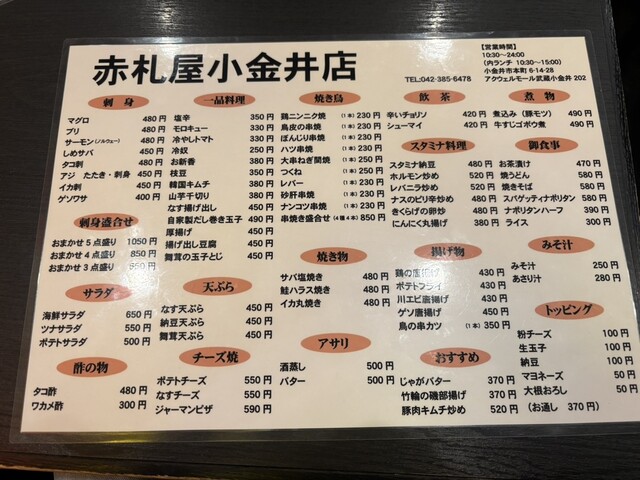 赤札屋小金井店
【営業時間】
10:30～24:00
(内ランチ 10:30～15:00)
小金井市本町 6-14-28
アクウェルモール武蔵小金井 202
TEL:042-385-6478
刺身
マグロ 480 円
ブリ 480 円
サーモン(ノルウェー) 480 円
しめサバ 450 円
タコ刺 480 円
アジ たたき・刺身 450 円
イカ刺 450 円
ゲソワサ 400 円
刺身盛合せ
おまかせ 5 点盛り 1050 円
おまかせ 4 点盛り 850 円
おまかせ 3 点盛り
サラダ
海鮮サラダ 650 円
ツナサラダ 550 円
ポテトサラダ 500 円
酢の物
タコ酢 480 円
ワカメ酢 300 円
一品料理
塩辛 350 円
モロキュー 330 円
冷やしトマト 330 円
冷奴 250 円
お新香 380 円
枝豆 350 円
韓国キムチ 380 円
山芋千切り 380 円
なす揚げ出し 450 円
自家製だし巻き玉子 490 円
厚揚げ 450 円
揚げ出し豆腐 450 円
舞茸の玉子とじ 450 円
天ぷら
なす天ぷら 450 円
納豆天ぷら 450 円
舞茸天ぷら 450 円
チーズ焼
ポテトチーズ 550 円
なすチーズ 550 円
ジャーマンピザ 590 円
焼き鳥
鶏ニンニク串焼 (1本) 230 円
鳥皮の串焼 (1本) 230 円
ぼんじり串焼 (1本) 230 円
ハツ串焼 (1本) 230 円
大串ねぎ間焼 (1本) 350 円
つくね (1本) 250 円
レバー (1本) 230 円
砂肝串焼 (1本) 230 円
ナンコツ串焼 (1本) 230 円
串焼き盛合せ (4種4本) 850 円
焼き物
サバ塩焼き 480 円
鮭ハラス焼き 480 円
イカ丸焼き 480 円
アサリ
酒蒸し 500 円
バター 500 円
飲茶
辛いチョリソ 420 円
シューマイ 420 円
スタミナ料理
スタミナ納豆 480 円
ホルモン炒め 580 円
レバニラ炒め 580 円
ナスのピリ辛炒め 480 円
きくらげの卵炒 480 円
にんにく丸揚げ 380 円
揚げ物
鶏の唐揚げ 430 円
ポテトフライ 430 円
川エビ唐揚げ 430 円
ゲソ唐揚げ 450 円
鳥の串カツ (1本) 350 円
おすすめ
じゃがバター 370 円
竹輪の磯部揚げ 370 円
豚肉キムチ炒め 520 円
煮物
煮込み (豚モツ) 490 円
牛すじゴボウ煮 490 円
御食事
お茶漬け 470 円
焼うどん 580 円
焼きそば 580 円
スパゲッティナポリタン 580 円
ナポリタンハーフ 390 円
ライス 300 円
みそ汁
みそ汁 250 円
あさり汁 280 円
トッピング
粉チーズ 100 円
生玉子 100 円
納豆 100 円
マヨネーズ 50 円
大根おろし 50 円
(お通し 370 円)